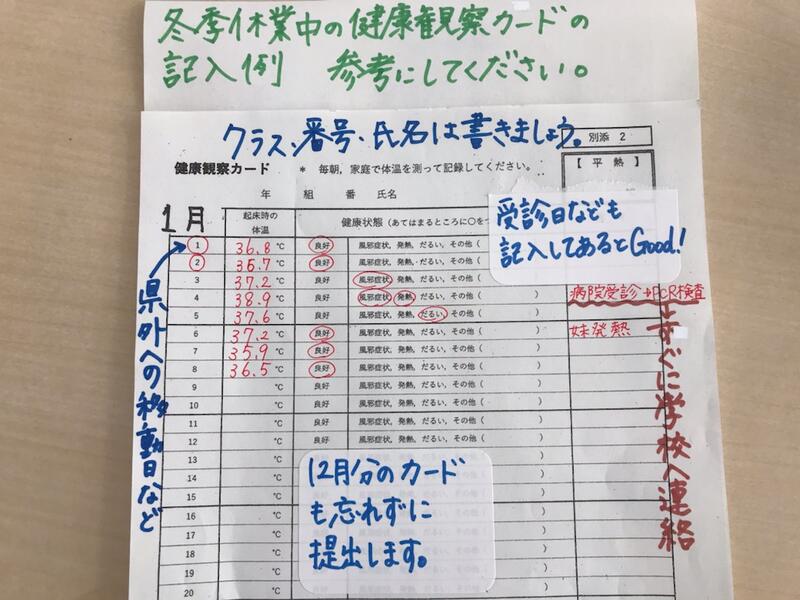 冬季休業中の健康観察カードの
記入例　参考にしてください。
クラス、番号、氏名は書きましょう。
別添 2
健康観察カード　＊ 毎朝，家庭で体温を測って記録してください。
【 平 熱 】
年　組　番　氏名
受診日なども
記入してあるとGood!
1月
起床時の
体温
健康状態（あてはまるところに○をつ
1 36.8 ℃ 良好 風邪症状，発熱，だるい，その他（
2 35.7 ℃ 良好 風邪症状，発熱，だるい，その他（
3 37.2 ℃ 良好 風邪症状，発熱，だるい，その他（ ）
4 38.9 ℃ 良好 風邪症状，発熱，だるい，その他（ ） 病院受診→PCR検査
5 37.6 ℃ 良好 風邪症状，発熱，だるい，その他（ ）
6 37.2 ℃ 良好 風邪症状，発熱，だるい，その他（ ） 妹発熱
7 35.9 ℃ 良好 風邪症状，発熱，だるい，その他（ ）
8 36.5 ℃ 良好 風邪症状，発熱，だるい，その他（ ）
9 ℃ 良好 風邪症状，発熱，だるい，その他（ ）
10 ℃ 良好 風邪症状，発熱，だるい，その他（ ）
11 ℃ 良好 風邪症状，発熱，だるい，その他（ ）
12 ℃ 良好 風邪症状，発熱，だるい，その他（ ）
13 ℃
14 ℃
15 ℃
16 ℃
17 ℃
18 ℃
19 ℃
20 ℃
県外への移動日など
すぐに学校へ連絡
12月分のカード
も忘れずに
提出します。